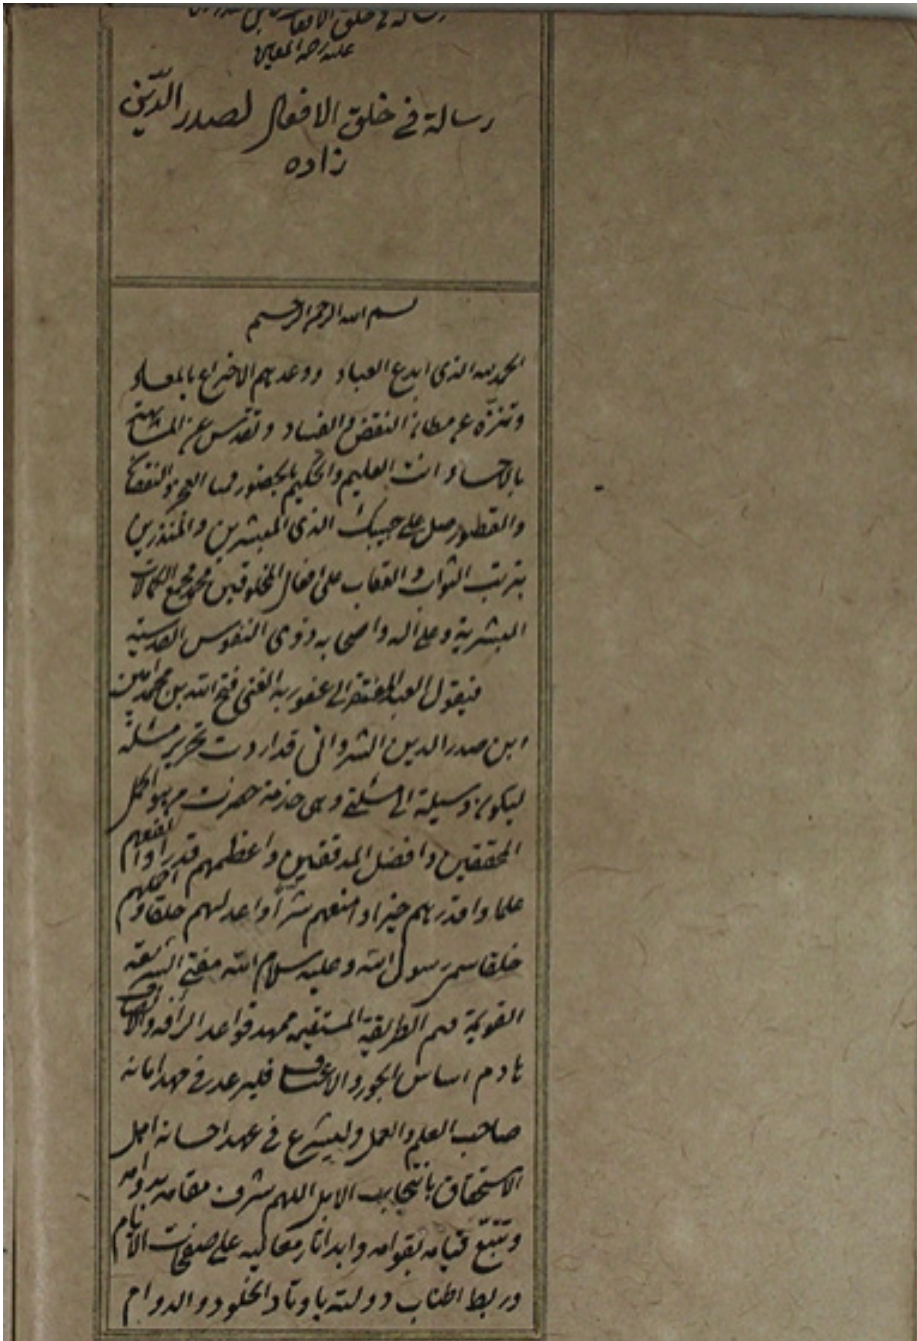 رسالة في خلق الافعال
عليه رحمة المعين
رسالة في خلق الافعال لصدر الدين
زاده
بسم الله الرحمن الرحيم
الحمد لله الذى ابدع العباد ووعدهم الاختراع بالمعاد
وتنزه عن مظان النقض والفساد وتقدس عن المشابهة
بالاجساد انت العليم والحكيم بالحضور والنقصان
والقصور صل على حبيبك الذى المبشرين والمنذرين
بترتب الثواب والعقاب على افعال المخلوقين محمد مجمع الكمالات
البشرية وعلى آله واصحابه ذوى النفوس القدسية
فيقول العبد المفتقر الى عفو ربه الغنى فتح الله بن محمد امين
ابن صدر الدين الشروانى قد اردت تحرير مسئلة
ليكون وسيلة الى مسئلتى وهى خدمة حضرت من هو اكمل
المحققين وافضل المدققين واعظمهم قدرا وانفعهم
علما واقدرهم خيرا وامنعهم شرا واعدلهم خلقا واكملهم
خلقا سمى رسول الله وعليه سلام الله مفتى الشريعة
القويمة الطريقة المستقيمة ممهد قواعد الرأفة والانصاف
هادم اساس الجور والاعتساف فى مهد امانه
صاحب العلم والعمل وليشرع فى عهد احسانه اهل
الاستحقاق الابل اللهم شرف مقامه بدوامه
قيامه بقوامه وابد اثار معاليه على صفحات الايام
وربط اطناب دولته باوتاد الخلود والدوام